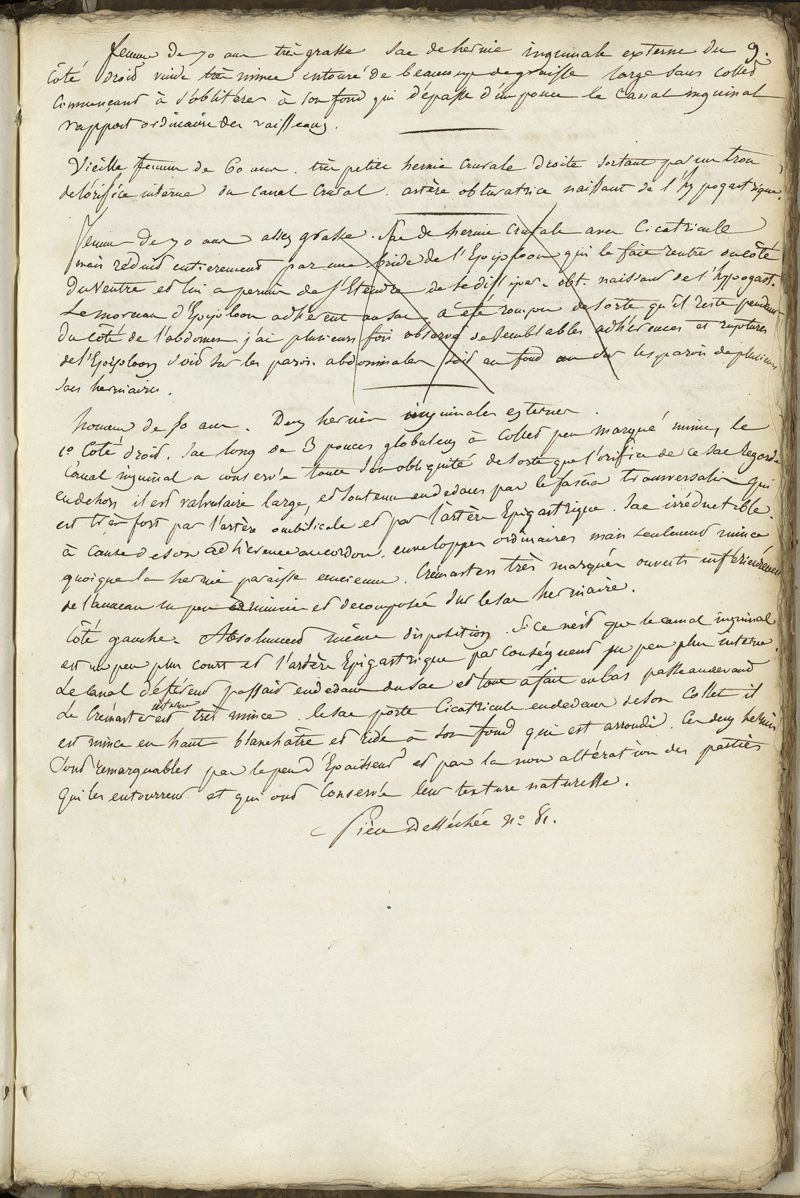 9.
femme de 70 ans très grasse Sac de hernie inguinale externe du
Côté droit vuide très mince entouré de beaucoup de graisse large sans collet
Commençant à s'oblitérer à son fond qui dépasse d'un pouce le Canal inguinal
rapport ordinaire des vaisseaux.
Vieille femme de 60 ans. très petite hernie crurale droite sortant par un trou
de l'orifice interne du canal crural. artère obturatrice naissant de l'hypogastrique.
femme de 70 ans assez grasse. Sac de hernie crurale avec Cicatricule
mais réduit entierement par une bride de l'Epiploon qui le fait rentrer du côté
du ventre et lui a permis de s'Etendre de se dissiper. obt. naissant de l'hypogast.
Le morceau d'Epiploon adhérent au sac a été rompu de sorte qu'il reste pendant
du côté de l'abdomen j'ai plusieurs fois observé de semblables adhérences et ruptures
de l'Epiploon soit sur les parois abdominales soit au fond ou sur les parois de plusieurs
sacs herniaires.
homme de 50 ans. Deux hernies inguinales externes.
1o Côté droit. Sac long de 3 pouces globuleux à Collet peu marqué mince, le
Canal inguinal a conservé toute son obliquité de sorte que l'orifice de ce sac regarde
en dehors il est valvulaire large, et soutenu en dedans par le fascia transversalis qui
est très fort par l'artère ombilicale et par l'artère Epigastrique. Sac irréductible
à Cause de son adhérence au cordon. enveloppes ordinaires mais seulement mince
quoique la hernie paraisse ancienne. Crémasters très marqués ouverts inférieurement
de l'anneau un peu et decomposée sur le sac herniaire.
Côté gauche. Absolument même disposition. Si ce n'est que le canal inguinal
est un peu plus court et l'artère Epigastrique par conséquent un peu plus interne.
Le Canal déférent passait en dedans du sac et tout a fait en bas passe au devant
Le Crémaster est très mince. le sac porte Cicatricule en dedans de son Collet il
est mince en haut blanchâtre et ridé à son fond qui est arrondi. Ces deux hernies
sont remarquables par le peu d'Epaisseur et par la non altération des parties
qui les entourent et qui ont Conservé leur texture naturelle.
Pièce desséchée no 81.